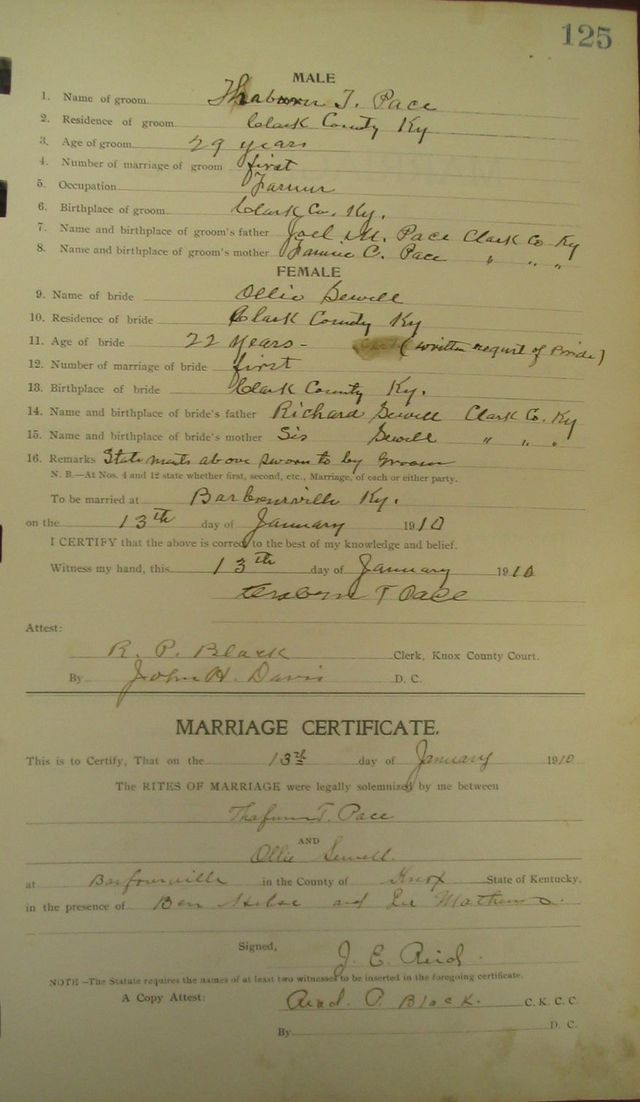 125
MALE
1. Name of groom T. Pace
2. Residence of groom Clark County Ky
3. Age of groom 29 years
4. Number of marriage of groom first
5. Occupation Farmer
6. Birthplace of groom Clark Co. Ky.
7. Name and birthplace of groom's father Joel M. Pace Clark Co Ky
8. Name and birthplace of groom's mother C. Pace " " "
FEMALE
9. Name of bride Ollie Sewell
10. Residence of bride Clark County Ky
11. Age of bride 22 years - (written request of Bride)
12. Number of marriage of bride first
13. Birthplace of bride Clark County Ky.
14. Name and birthplace of bride's father Richard Sewell Clark Co. Ky
15. Name and birthplace of bride's mother Sis Sewell " " "
16. Remarks Statements above sworn to by Groom
N. B.—At Nos. 4 and 12 state whether first, second, etc., Marriage, of each or either party.
To be married at Barbourville Ky.
on the 13th day of January 1910
I CERTIFY that the above is correct to the best of my knowledge and belief.
Witness my hand, this 13th day of January 1910
T Pace
Attest:
R. P. Black Clerk, Knox County Court.
By John H. Davis D. C.
MARRIAGE CERTIFICATE.
This is to Certify, That on the 13th day of January 1910
The RITES OF MARRIAGE were legally solemnized by me between
T. Pace
AND
Ollie Sewell.
at Barbourville in the County of Knox State of Kentucky.
in the presence of Ben and Mathews.
Signed, J. E. Reid.
NOTE—The Statute requires the names of at least two witnesses to be inserted in the foregoing certificate.
A Copy Attest: Read. P. Black. C. K. C. C.
By D. C.